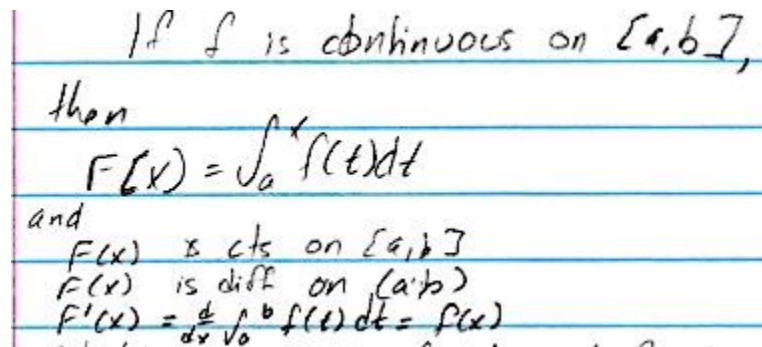 If f is continuous on [a,b],
then
F[x) = ∫_a^x f(t)dt
and
F(x) is cts on [a,b]
F(x) is diff on (a,b)
F'(x) = d/dx ∫_a^b f(t) dt = f(x)